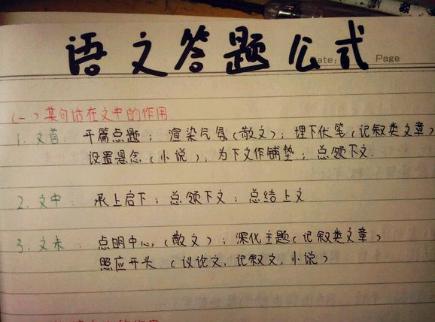 语文答题公式
Date:
Page
(一)某句话在文中的作用
1. 文首 开篇点题；渲染气氛(散文)；埋下伏笔(记叙类文章)
设置悬念(小说)，为下文作铺垫；总领下文.
2. 文中 承上启下；总领下文；总结上文
3. 文末 点明中心,(散文)；深化主题(记叙类文章)
照应开头(议论文,记叙文,小说)